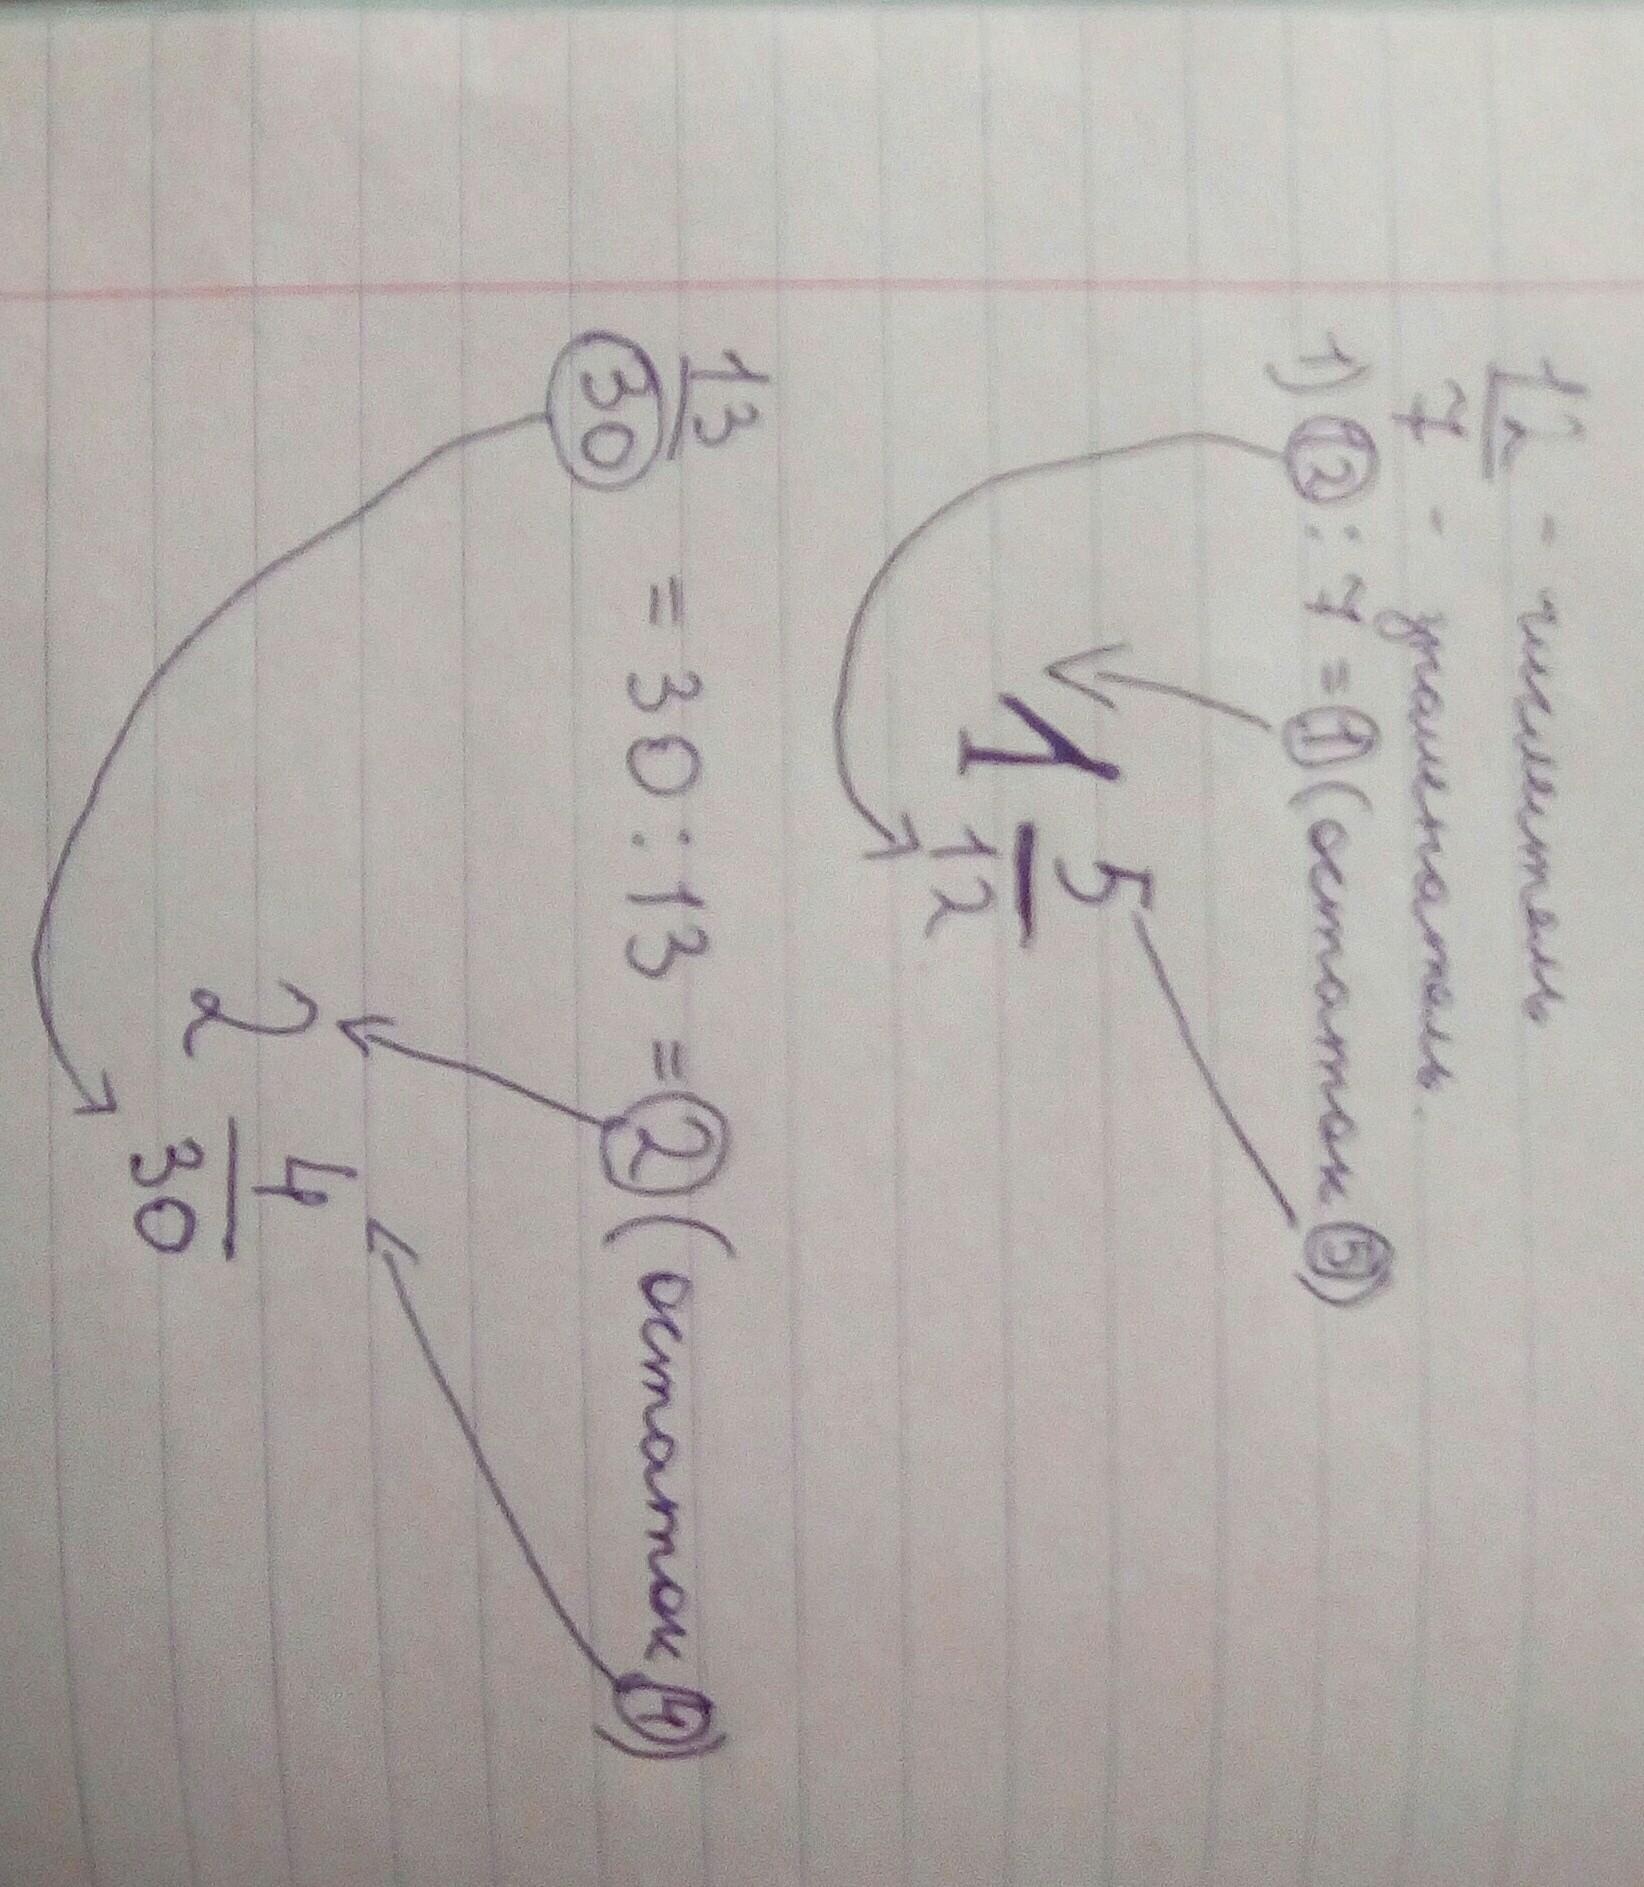 12 - числитель
7 - знаменатель.
1) 12 : 7 = 1 (остаток 5)
1 5
12
13
30 = 30 : 13 = 2 (остаток 4)
2 4
30